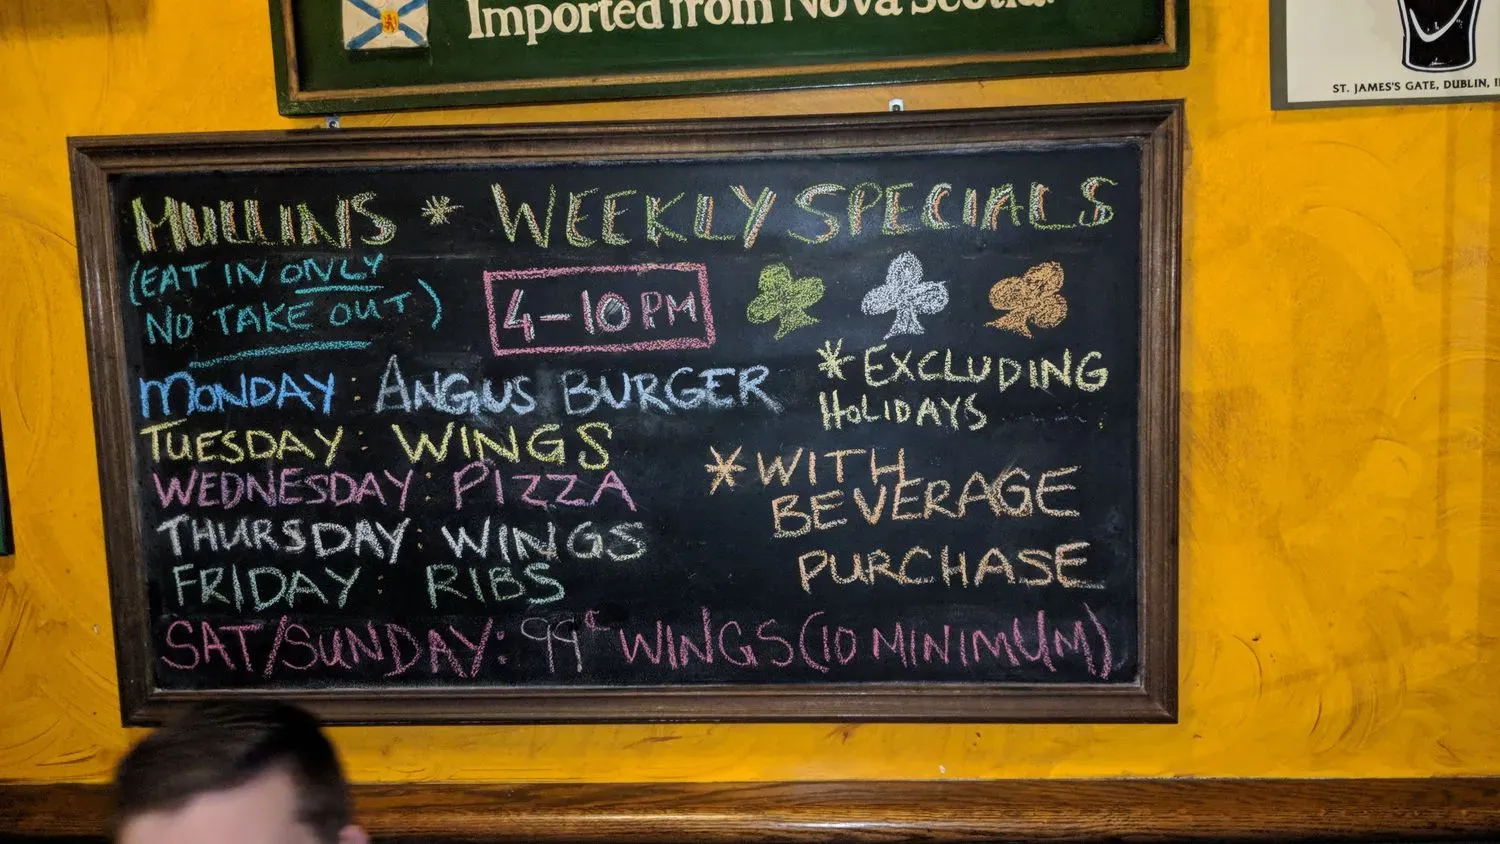 Imported from Nova Scotia.
ST. JAMES'S GATE, DUBLIN,
MULLINS * WEEKLY SPECIALS
(EAT IN ONLY
NO TAKE OUT)
4-10 PM
* EXCLUDING
HOLIDAYS
MONDAY: ANGUS BURGER
TUESDAY: WINGS
WEDNESDAY: PIZZA
THURSDAY: WINGS
FRIDAY: RIBS
* WITH
BEVERAGE
PURCHASE
SAT/SUNDAY: 99¢ WINGS (10 MINIMUM)